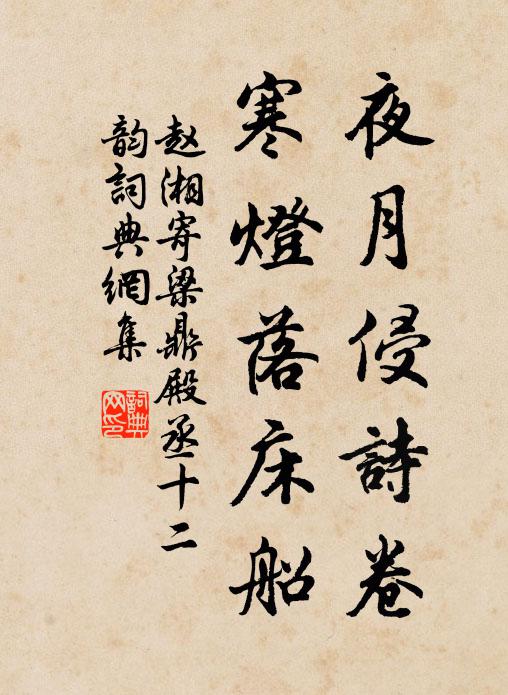 夜月侵詩卷
寒燈落床船
赵湘寄梁鼎殿丞十二
韵詞典網集
詞典
网印